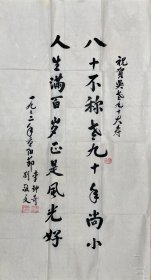 祝贺吴老九十大寿
八十不称老九十年尚小
人生满百岁正是风光好
一九九二年重阳节
李钟奇
刘敬文